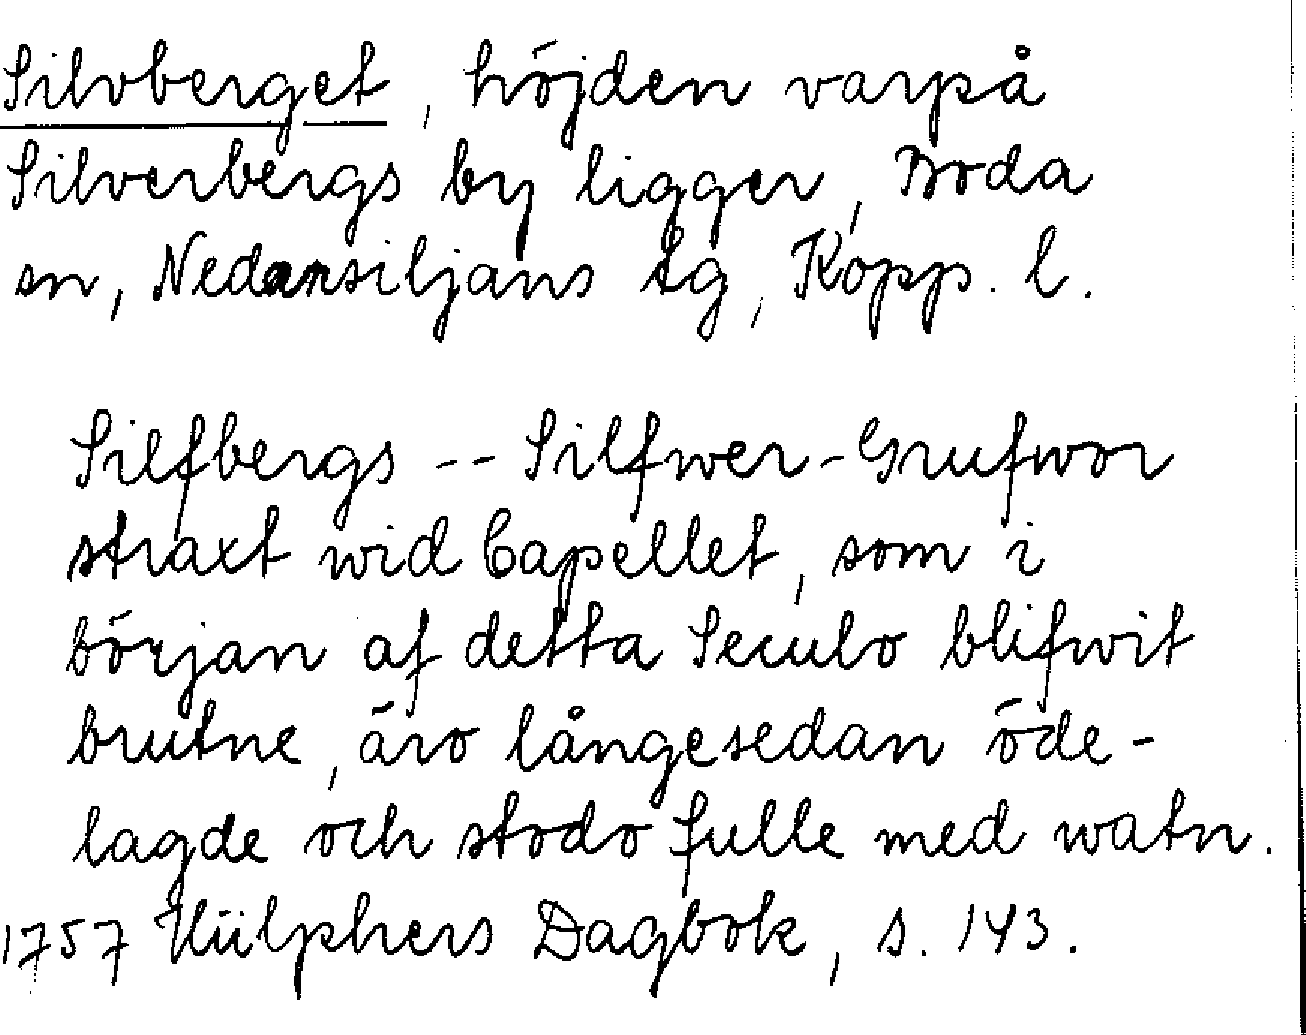 Silvberget, höjden varpå
Silverbergs by ligger, Boda
sn, Nedansiljans tg, Kopp. l.
Silfbergs -- Silfwer-Grufwor
straxt wid Capellet, som i
början af detta Seculo blifwit
brutne, äro långesedan öde-
lagde och stodo fulle med watn.
1757 Hülphers Dagbok, s. 143.